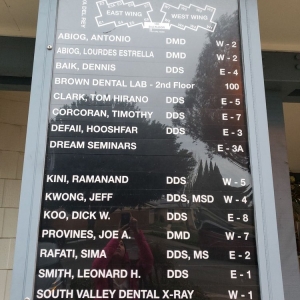 EAST WING WEST WING
ABIOG, ANTONIO DMD W - 2
ABIOG, LOURDES ESTRELLA DMD W - 2
BAIK, DENNIS DDS E - 4
BROWN DENTAL LAB - 2nd Floor 100
CLARK, TOM HIRANO DDS E - 5
CORCORAN, TIMOTHY DDS E - 7
DEFAII, HOOSHFAR DDS E - 3
DREAM SEMINARS E - 3A
KINI, RAMANAND DDS W - 5
KWONG, JEFF DDS, MSD W - 4
KOO, DICK W. DDS E - 8
PROVINES, JOE A. DMD W - 7
RAFATI, SIMA DDS, MS E - 2
SMITH, LEONARD H. DDS E - 1
SOUTH VALLEY DENTAL X-RAY W - 1